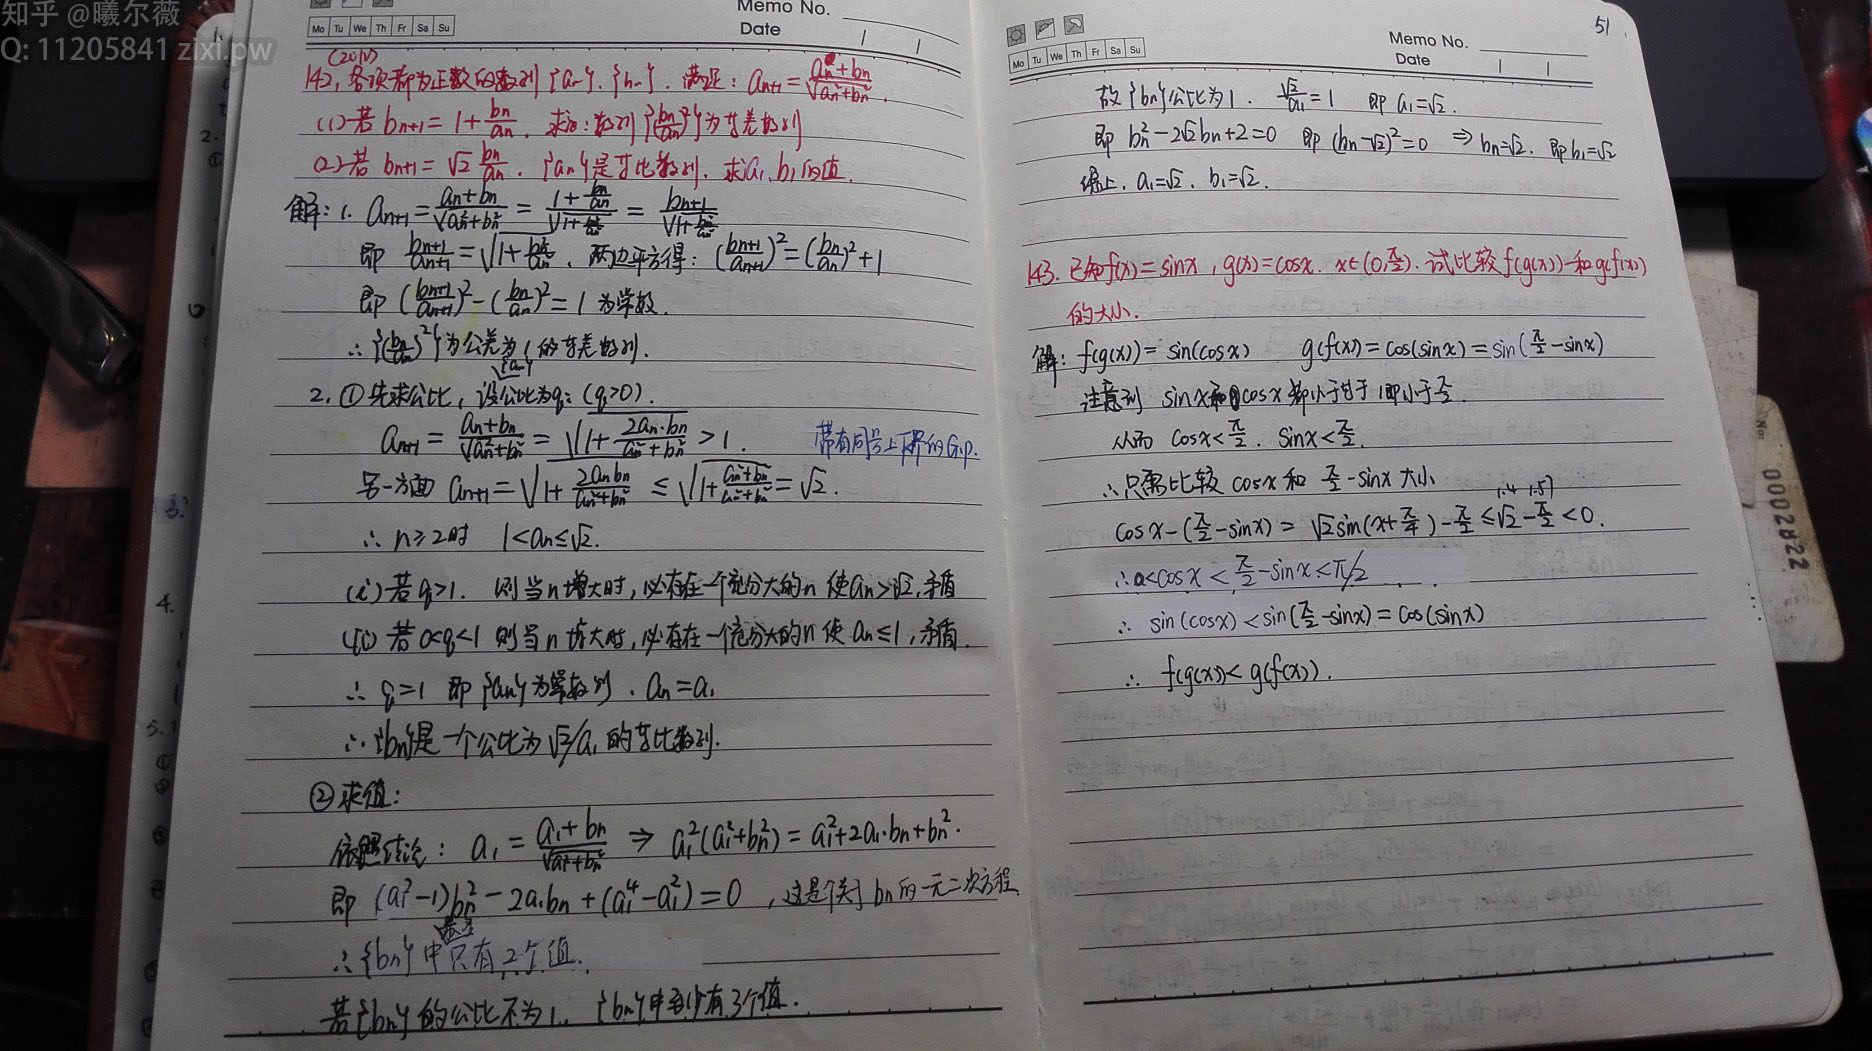 知乎 @曦尔薇
Q: 11205841 zixi.pw
Memo No.
Mo Tu We Th Fr Sa Su
Date
142. 各项都为正数的数列{an}.{bn}. 满足: an+1 = (an+bn)/√(an²+bn²).
(1)若 bn+1 = 1 + bn/an. 求证:数列{(bn/an)²}为等差数列
(2)若 bn+1 = √2 bn/an. {an}是等比数列. 求a1、b1的值.
解: 1. an+1 = (an+bn)/√(an²+bn²) = (1+bn/an)/√(1+bn²/an²) = bn+1/√(1+bn²/an²)
即 bn+1/an+1 = √(1+bn²/an²). 两边平方得: (bn+1/an+1)² = (bn/an)² + 1
即 (bn+1/an+1)² - (bn/an)² = 1 为常数.
∴ {(bn/an)²}为公差为1的等差数列.
{an}
2. ①先求公比, 设公比为q: (q>0).
an+1 = (an+bn)/√(an²+bn²) = √(1 + 2an·bn/(an²+bn²)) > 1.
带有同号上下界的G.p.
另一方面 an+1 = √(1 + 2anbn/(an²+bn²)) ≤ √(1 + (an²+bn²)/(an²+bn²)) = √2.
∴ n≥2时 1<an≤√2.
(i)若q>1. 则当n增大时, 必存在一个充分大的n 使an>√2,矛盾
(ii)若0<q<1 则当n增大时, 必存在一个充分大的n 使an≤1,矛盾.
∴ q=1 即{an}为常数列. an=a1
∴ {bn}是一个公比为√2/a1的等比数列.
②求值:
依照结论: a1 = (a1+bn)/√(a1²+bn²) ⇒ a1²(a1²+bn²) = a1²+2a1·bn+bn².
即 (a1²-1)bn² - 2a1bn + (a1⁴-a1²) = 0 , 这是个关于bn的一元二次方程.
∴ {bn}中只有2个值.
若{bn}的公比不为1. {bn}中至少有3个值.
51
Memo No.
Mo Tu We Th Fr Sa Su
Date
故{bn}公比为1. √2/a1 = 1 即 a1=√2.
即 bn²-2√2bn+2=0 即 (bn-√2)²=0 ⇒ bn=√2. 即b1=√2
综上. a1=√2. b1=√2.
143. 已知f(x)=sinx, g(x)=cosx. x∈(0,π/2). 试比较f(g(x))和g(f(x))
的大小.
解: f(g(x)) = sin(cosx) g(f(x)) = cos(sinx) = sin(π/2-sinx)
注意到 sinx和cosx都小于等于1即小于π/2.
从而 cosx<π/2. sinx<π/2.
∴只需比较 cosx和 π/2-sinx 大小
1.4 1.57
cosx-(π/2-sinx) = √2sin(x+π/4)-π/2≤√2-π/2<0.
∴0<cosx<π/2-sinx<π/2
∴ sin(cosx)<sin(π/2-sinx)=cos(sinx)
∴ f(g(x))<g(f(x)).
No:
0002822